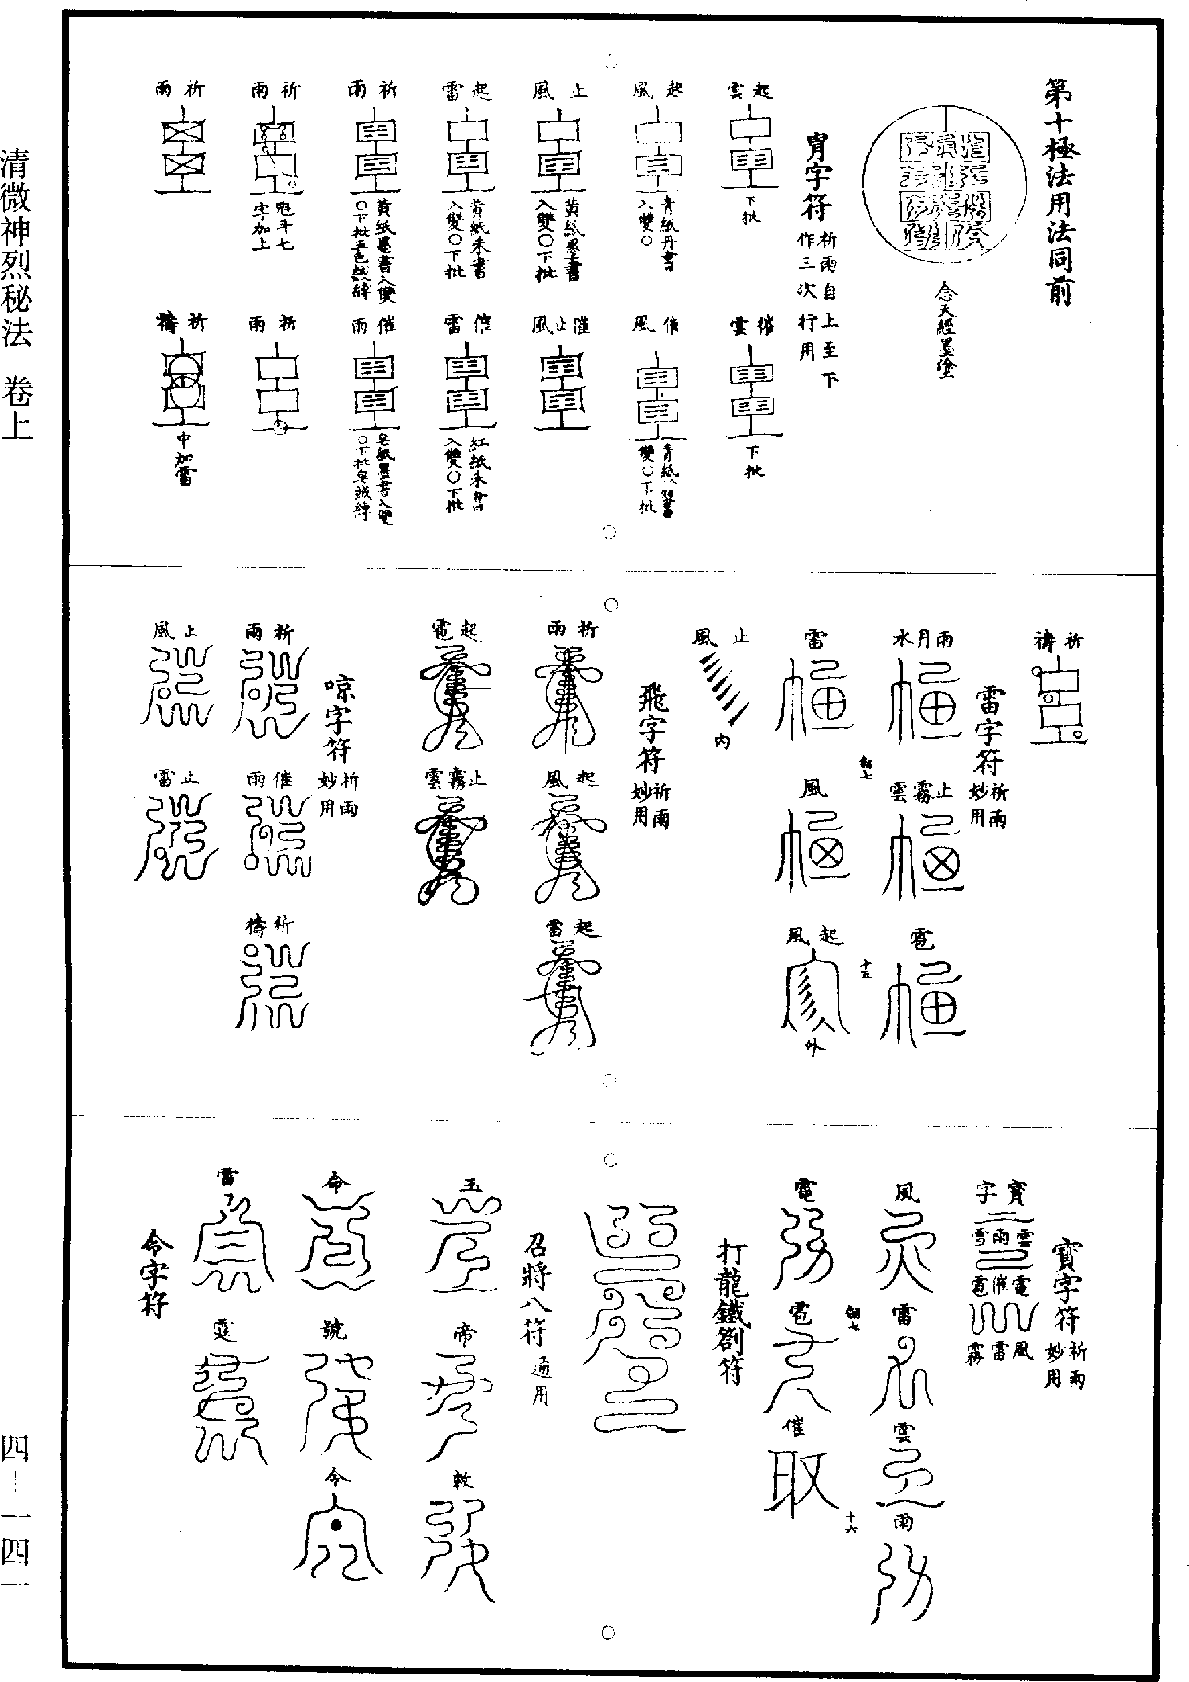 清微神烈秘法 卷上
四–一四一
第十極法用法同前
念天經墨塗
胄字符 祈雨自上至下
作三次行用
起雲
下批
催雲
下批
起風
青紙丹書
入變○
催風
青紙
變○下批
止風
黃紙墨書
入變○下批
催止風
起雷
黃紙朱書
入變○下批
催雷
紅紙朱書
入變○下批
祈雨
黃紙墨書入變
○下批五色絨縛
催雨
皂紙墨書入變
○下批皂絨縛
祈雨
魁斗七
字加上
祈雨
祈雨
祈禱
中加雷
祈禱
雷字符 祈雨
妙用
雨月水
止霧雲
雹
雷
風
起風
外
十五
止風
內
飛字符 祈雨
妙用
祈雨
起風
起雷
起電
止霧雲
喨字符 祈雨
妙用
祈雨
催雨
祈禱
止風
止雷
寶字符 祈雨
妙用
寶字
雲雨雪
電催雹
風雷霧
風
雷
雲
雨
電
雹
催
十六
打龍鐵劄符
召將八符 通用
玉
帝
敕
命
號
令
雷
霆
令字符